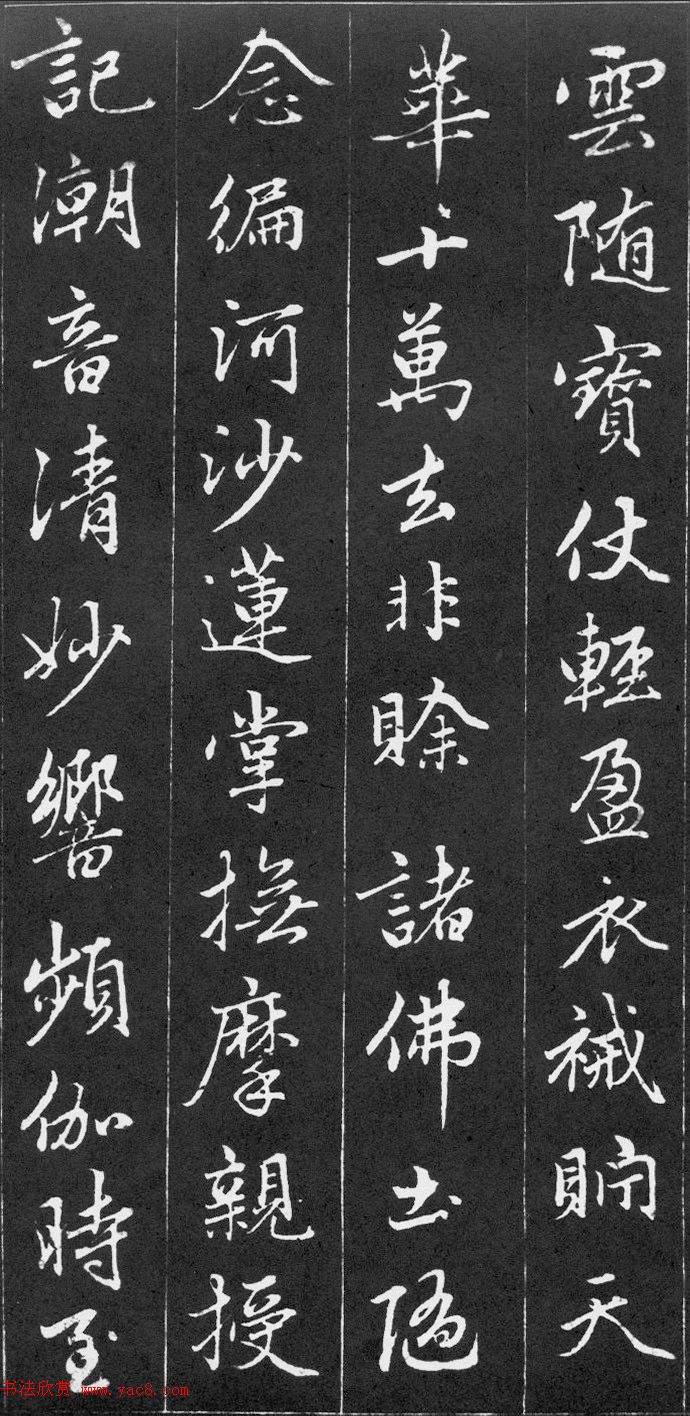 雲随寶仗輕盈衣祴貯天
華十萬去非賒諸佛土隨
念徧河沙蓮掌撫摩親授
記潮音清妙響頻伽時至
书法欣赏 www.yac8.com